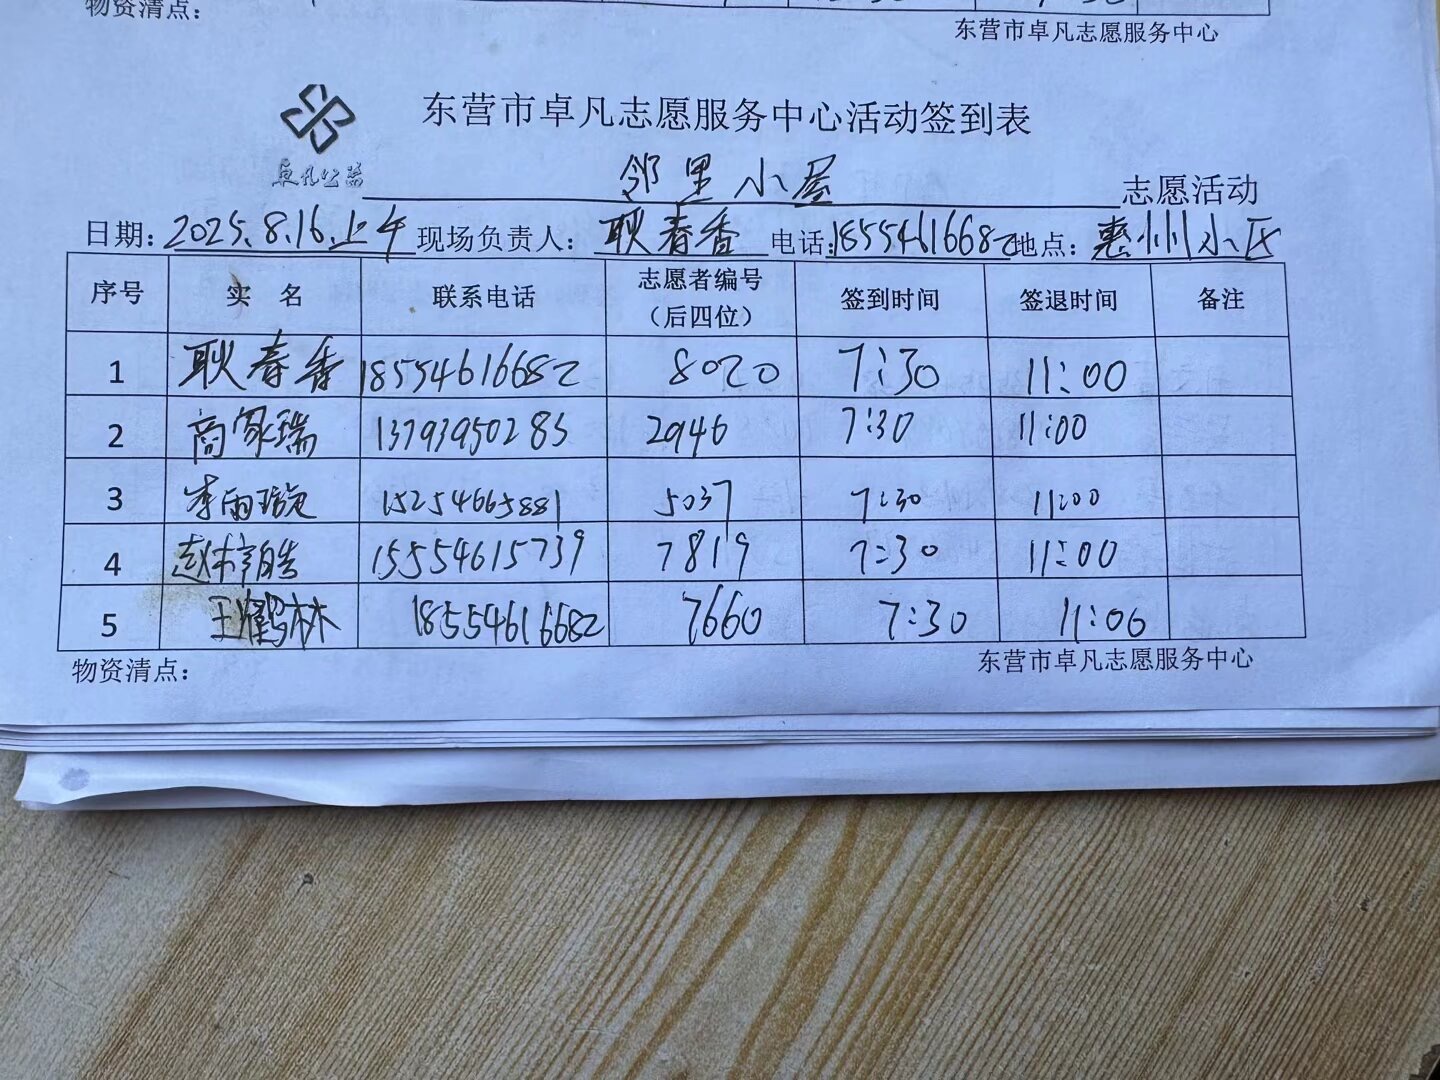 物资清点：
东营市卓凡志愿服务中心
东营市卓凡志愿服务中心活动签到表
卓凡公益
邻里小屋 志愿活动
日期：2025.8.16.上午 现场负责人：耿春香 电话：18554616682 地点：惠州小区
序号 实 名 联系电话 志愿者编号（后四位） 签到时间 签退时间 备注
1 耿春香 18554616682 8020 7:30 11:00
2 商家瑞 13793950285 2946 7:30 11:00
3 李雨璇 15254665881 5037 7:30 11:00
4 15554615739 7819 7:30 11:00
5 王鹤林 18554616682 7660 7:30 11:00
物资清点：
东营市卓凡志愿服务中心